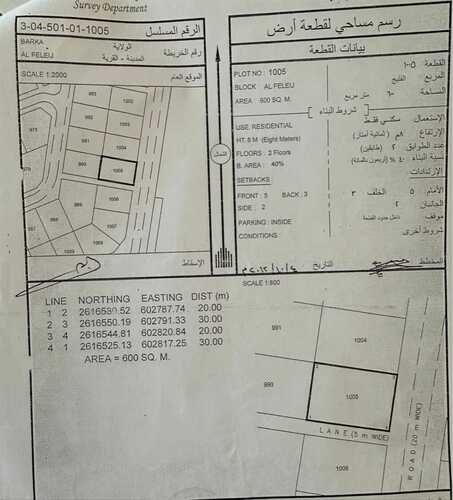 Survey Department
رسم مساحي لقطعة أرض
3-04-501-01-1005 الرقم المسلسل
بيانات القطعة
BARKA الولاية
AL FELEU المدينة - القرية
رقم الخريطة
SCALE 1:2000 الموقع العام
PLOT NO : 1005
BLOCK AL FELEU
AREA 600 SQ. M.
القطعة ١٠٠٥
المربع الفليج
المساحة ٦٠٠ متر مربع
شروط البناء
USE. RESIDENTIAL
HT. 8 M (Eight Meters)
FLOORS : 2 Floors
B. AREA : 40%
SETBACKS :
FRONT : 5 BACK : 3
SIDE : 2
PARKING : INSIDE
CONDITIONS :
الإستعمال سكني فقط
الإرتفاع ٨م (ثمانية أمتار)
عدد الطوابق ٢ (طابقين)
نسبة البناء ٤٠ % (أربعون بالمائة)
الإرتدادات
الأمام ٥ الخلف ٣
الجانبان ٢
موقف داخل حدود القطعة
شروط أخرى
993
1006
975
1004
990
1005
الشمال
الإسقاط
التاريخ
المخطط
SCALE 1:500
LINE NORTHING EASTING DIST (m)
1 2 2616530.52 602787.74 20.00
2 3 2616550.19 602791.33 30.00
3 4 2616544.81 602820.84 20.00
4 1 2616525.13 602817.25 30.00
AREA = 600 SQ. M.
991
1004
990
1005
LANE (5 m WIDE)
1006
ROAD (20 m WIDE)